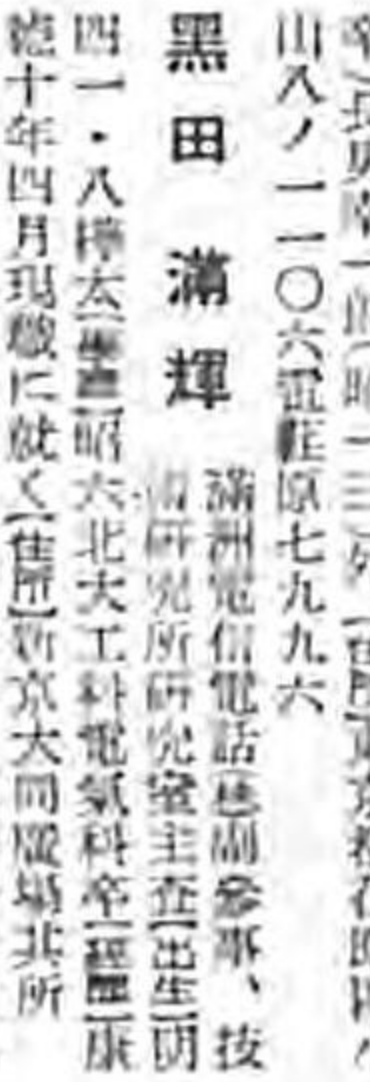 長男
山八ノ一一〇六電荏原七九九六
黑田滿輝
滿洲電信電話㈱副參事、技
術研究所研究室主査【出生】明
四一・八樺太【學歷】昭六北大工科電氣科卒【經歷】康
德十年四月現職に就く【住所】新京大同廣場其所